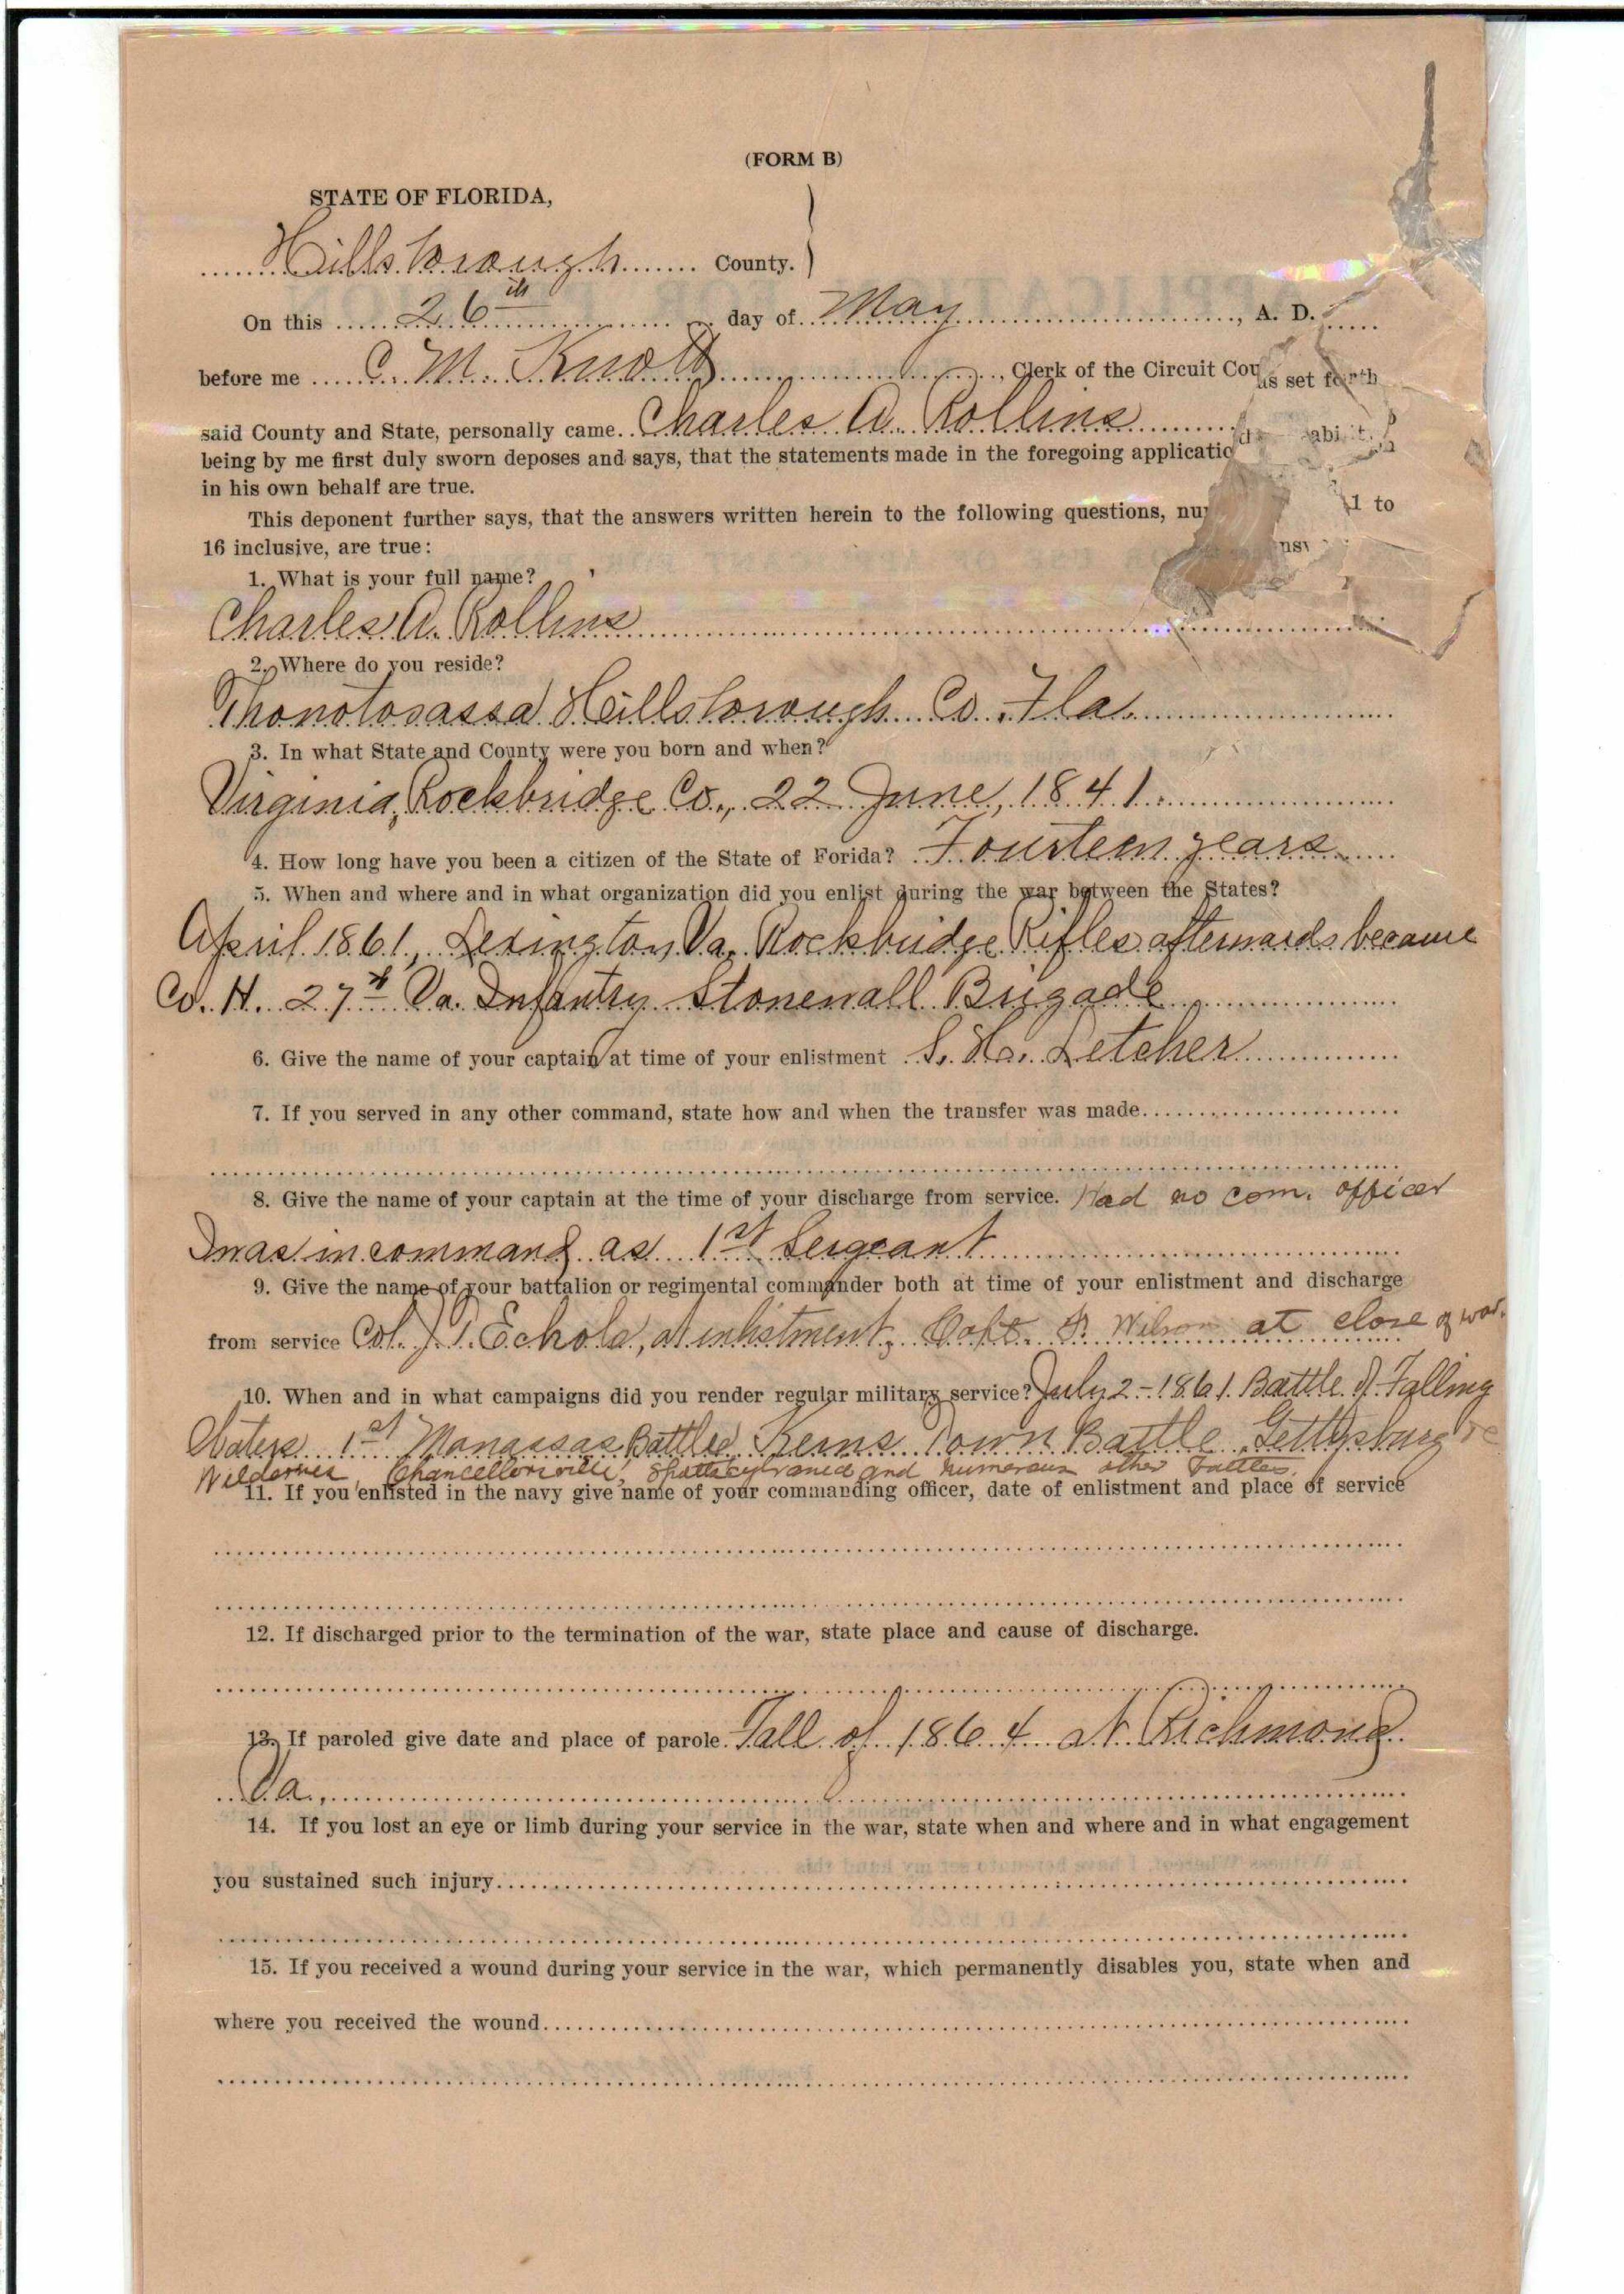 (FORM B)
STATE OF FLORIDA,
Hillsborough County.
On this 26th day of May, A. D.
before me C. M. Knott, Clerk of the Circuit Cou as set forth
said County and State, personally came Charles A. Rollins
being by me first duly sworn deposes and says, that the statements made in the foregoing applicatio
in his own behalf are true.
This deponent further says, that the answers written herein to the following questions, nu 1 to
16 inclusive, are true:
1. What is your full name?
Charles A. Rollins
2. Where do you reside?
Thonotosassa Hillsborough Co. Fla.
3. In what State and County were you born and when?
Virginia, Rockbridge Co., 22 June, 1841.
4. How long have you been a citizen of the State of Forida? Fourteen years
5. When and where and in what organization did you enlist during the war between the States?
April 1861, Lexington, Va. Rockbridge Rifles afterwards became
Co. H. 27th Va. Infantry Stonewall Brigade
6. Give the name of your captain at time of your enlistment S. H. Letcher
7. If you served in any other command, state how and when the transfer was made
8. Give the name of your captain at the time of your discharge from service. Had no com. officer
I was in command as 1st Sergeant
9. Give the name of your battalion or regimental commander both at time of your enlistment and discharge
from service Col. Echols, at enlistment, Capt. Wilson at close of war.
10. When and in what campaigns did you render regular military service? July 2-1861. Battle of Falling
Waters 1st Manassas Battle Kerns Town Battle Gettysburg
Wilderness, Chancellorsville, Spottsylvania and numerous other battles.
11. If you enlisted in the navy give name of your commanding officer, date of enlistment and place of service
12. If discharged prior to the termination of the war, state place and cause of discharge.
13. If paroled give date and place of parole. Fall of 1864 at Richmond
Va.,
14. If you lost an eye or limb during your service in the war, state when and where and in what engagement
you sustained such injury
15. If you received a wound during your service in the war, which permanently disables you, state when and
where you received the wound